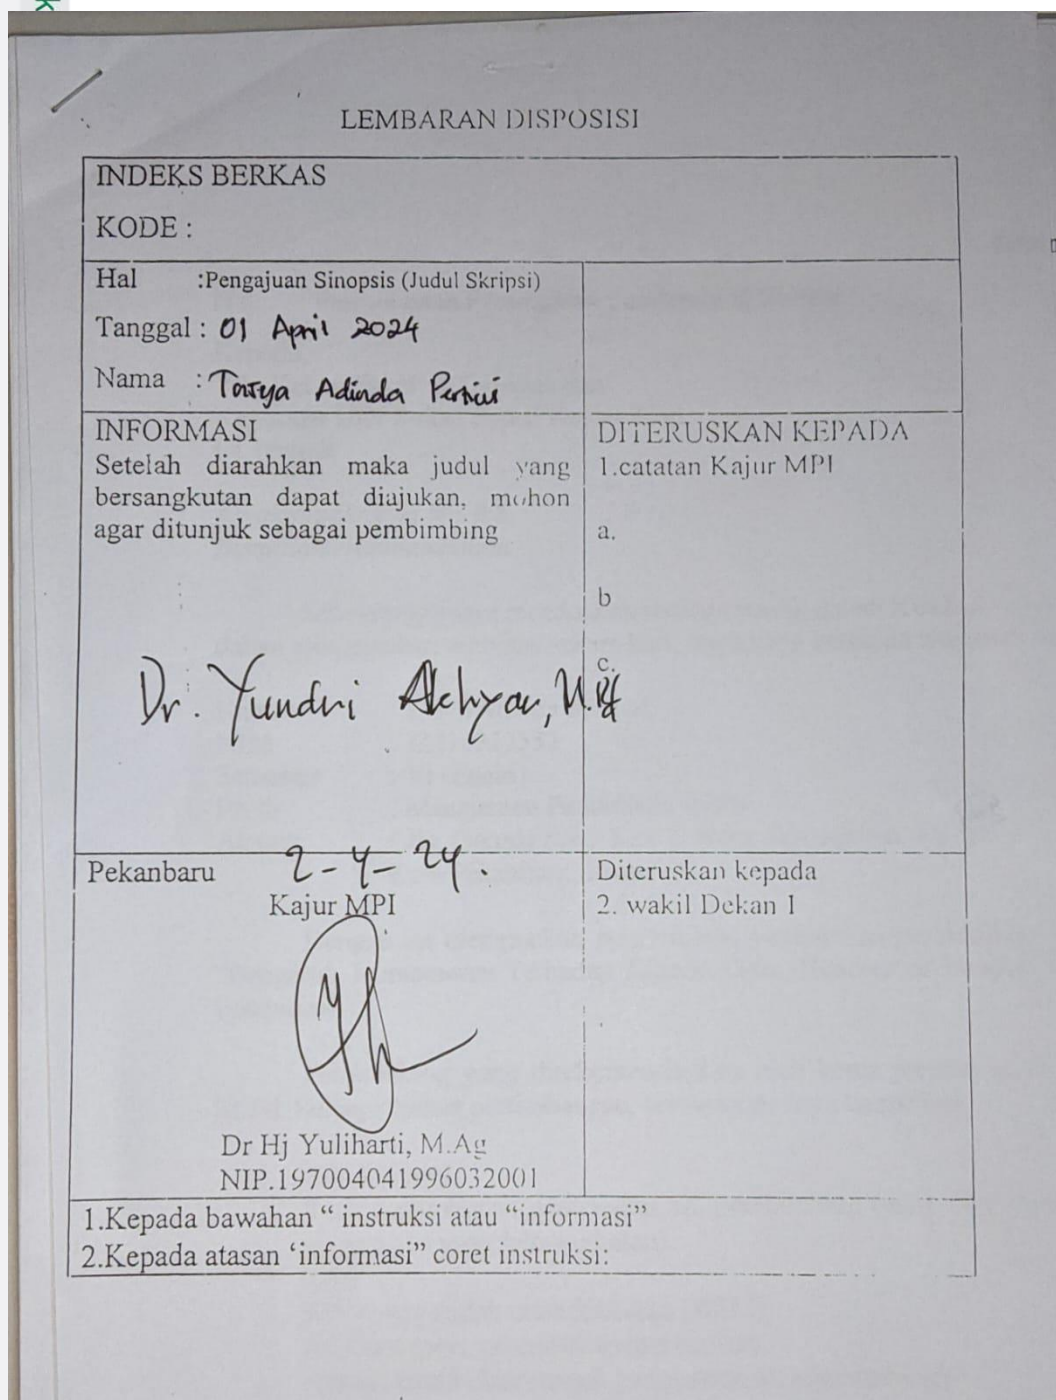 LEMBARAN DISPOSISI
INDEKS BERKAS
KODE :
Hal :Pengajuan Sinopsis (Judul Skripsi)
Tanggal : 01 April 2024
Nama : Tasya Adinda Pertiwi
INFORMASI
Setelah diarahkan maka judul yang
bersangkutan dapat diajukan, mohon
agar ditunjuk sebagai pembimbing
Dr. Yundri Akhyar, M.Pd
DITERUSKAN KEPADA
1.catatan Kajur MPI
a.
b
c.
Pekanbaru 2-4-24.
Kajur MPI
Dr Hj Yuliharti, M.Ag
NIP.197004041996032001
Diteruskan kepada
2. wakil Dekan I
1.Kepada bawahan “ instruksi atau “informasi”
2.Kepada atasan ‘informasi” coret instruksi: